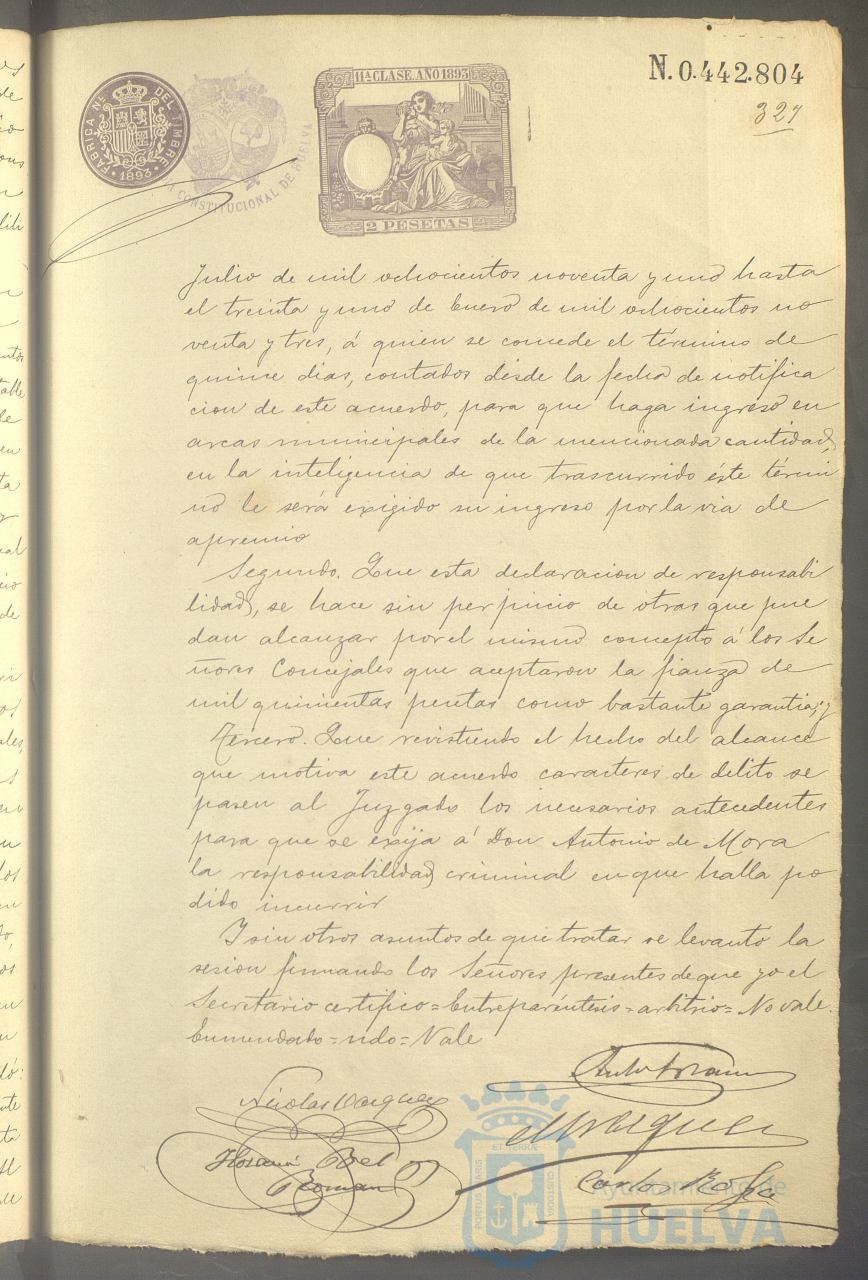 11ª CLASE. AÑO 1893
2 PESETAS
FABRICA NAL. DEL TIMBRE
1893
CONSTITUCIONAL DE HUELVA
N. 0.442.804
327
Julio de mil ochocientos noventa y uno hasta
el treinta y uno de Enero de mil ochocientos no
venta y tres, á quien se concede el término de
quince dias, contados desde la fecha de notifica
cion de este acuerdo, para que haga ingreso en
arcas municipales de la mencionada cantidad,
en la inteligencia de que trascurrido éste térmi
no le será exigido su ingreso por la via de
apremio
Segundo. Que esta declaracion de responsabi
lidad, se hace sin perjuicio de otras que pue
dan alcanzar por el mismo concepto á los Se
ñores Concejales que aceptaron la fianza de
mil quinientas pesetas como bastante garantia; y
Tercero. Que revistiendo el hecho del alcance
que motiva este acuerdo caracteres de delito se
pasen al Juzgado los necesarios antecedentes
para que se exija á Don Antonio de Mora
la responsabilidad criminal en que halla po
dido incurrir
Y sin otros asuntos de que tratar se levantó la
sesion firmando los Señores presentes de que yo el
Secretario certifico = Entreparéntesis = arbitrio = No vale.
Enmendado = ndo = Vale
Nicolas Vazquez
Vazquez
Roman
Carlos
PORTUS MARIS
ET TERRÆ
CUSTODIA
Ayuntamiento de
HUELVA